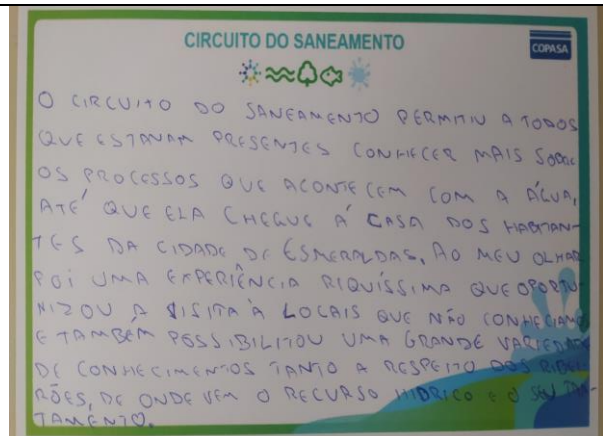 CIRCUITO DO SANEAMENTO
COPASA
O CIRCUITO DO SANEAMENTO PERMITIU A TODOS
QUE ESTAVAM PRESENTES CONHECER MAIS SOBRE
OS PROCESSOS QUE ACONTECEM COM A ÁGUA,
ATÉ QUE ELA CHEGUE À CASA DOS HABITAN-
TES DA CIDADE DE ESMERALDAS. AO MEU OLHAR
FOI UMA EXPERIÊNCIA RIQUÍSSIMA QUE OPORTU-
NIZOU A VISITA À LOCAIS QUE NÃO CONHECIAMOS
E TAMBÉM POSSIBILITOU UMA GRANDE VARIEDADE
DE CONHECIMENTOS TANTO A RESPEITO DOS RIBEI-
RÕES, DE ONDE VEM O RECURSO HÍDRICO E O SEU TRA-
TAMENTO.